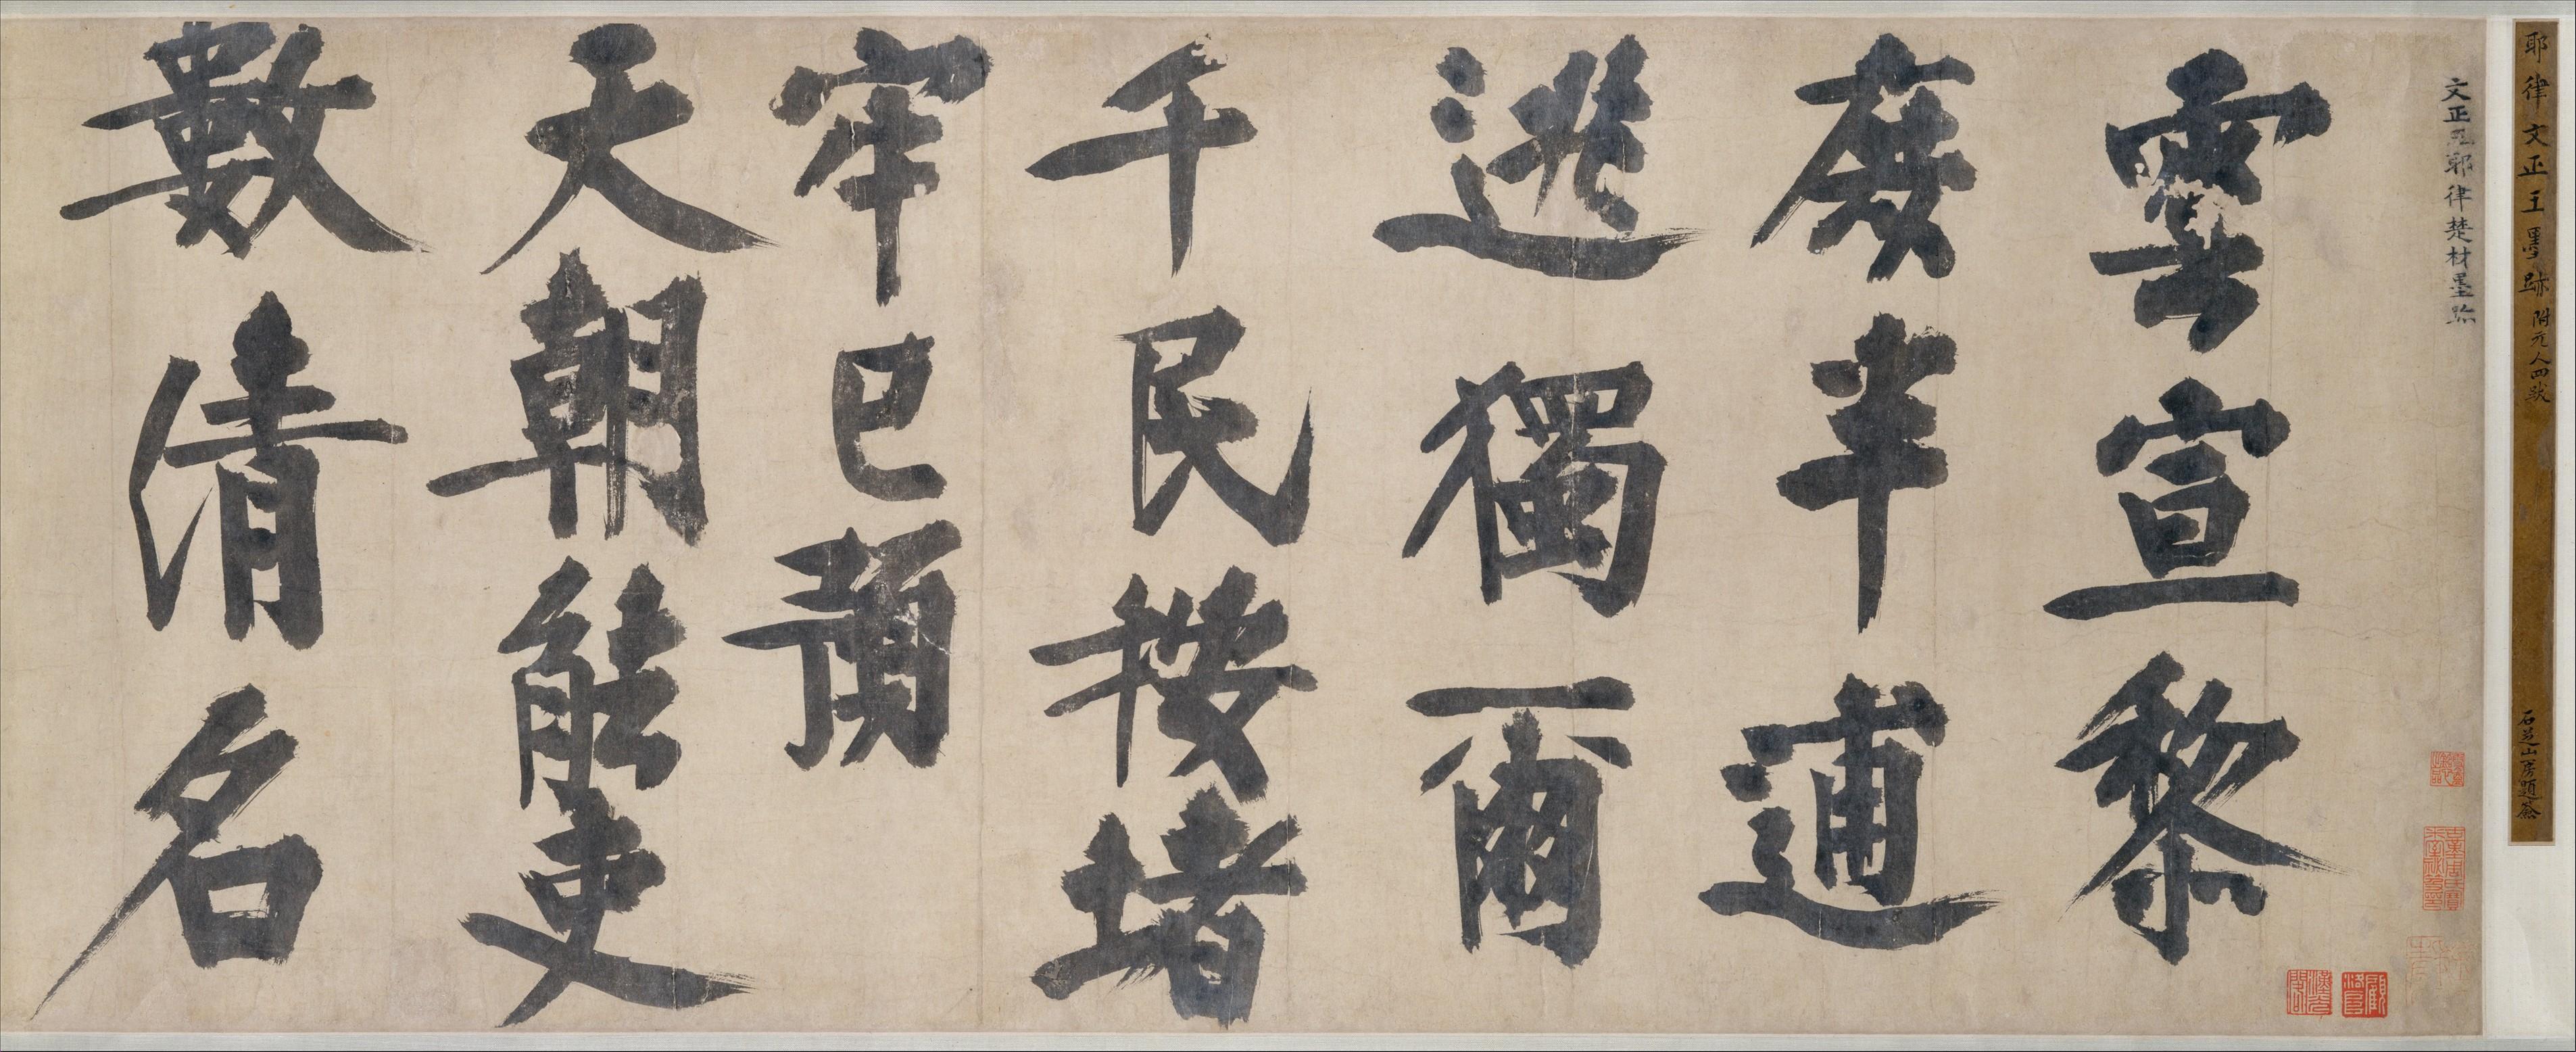 耶律文正王墨跡 附元人四跋
石芝山房題簽
文正王耶律楚材墨跡
雲宣黎
庶半逋
逃獨爾
千民按堵
牢已預
天朝能吏
數清名
顧洛阜
漢光閣